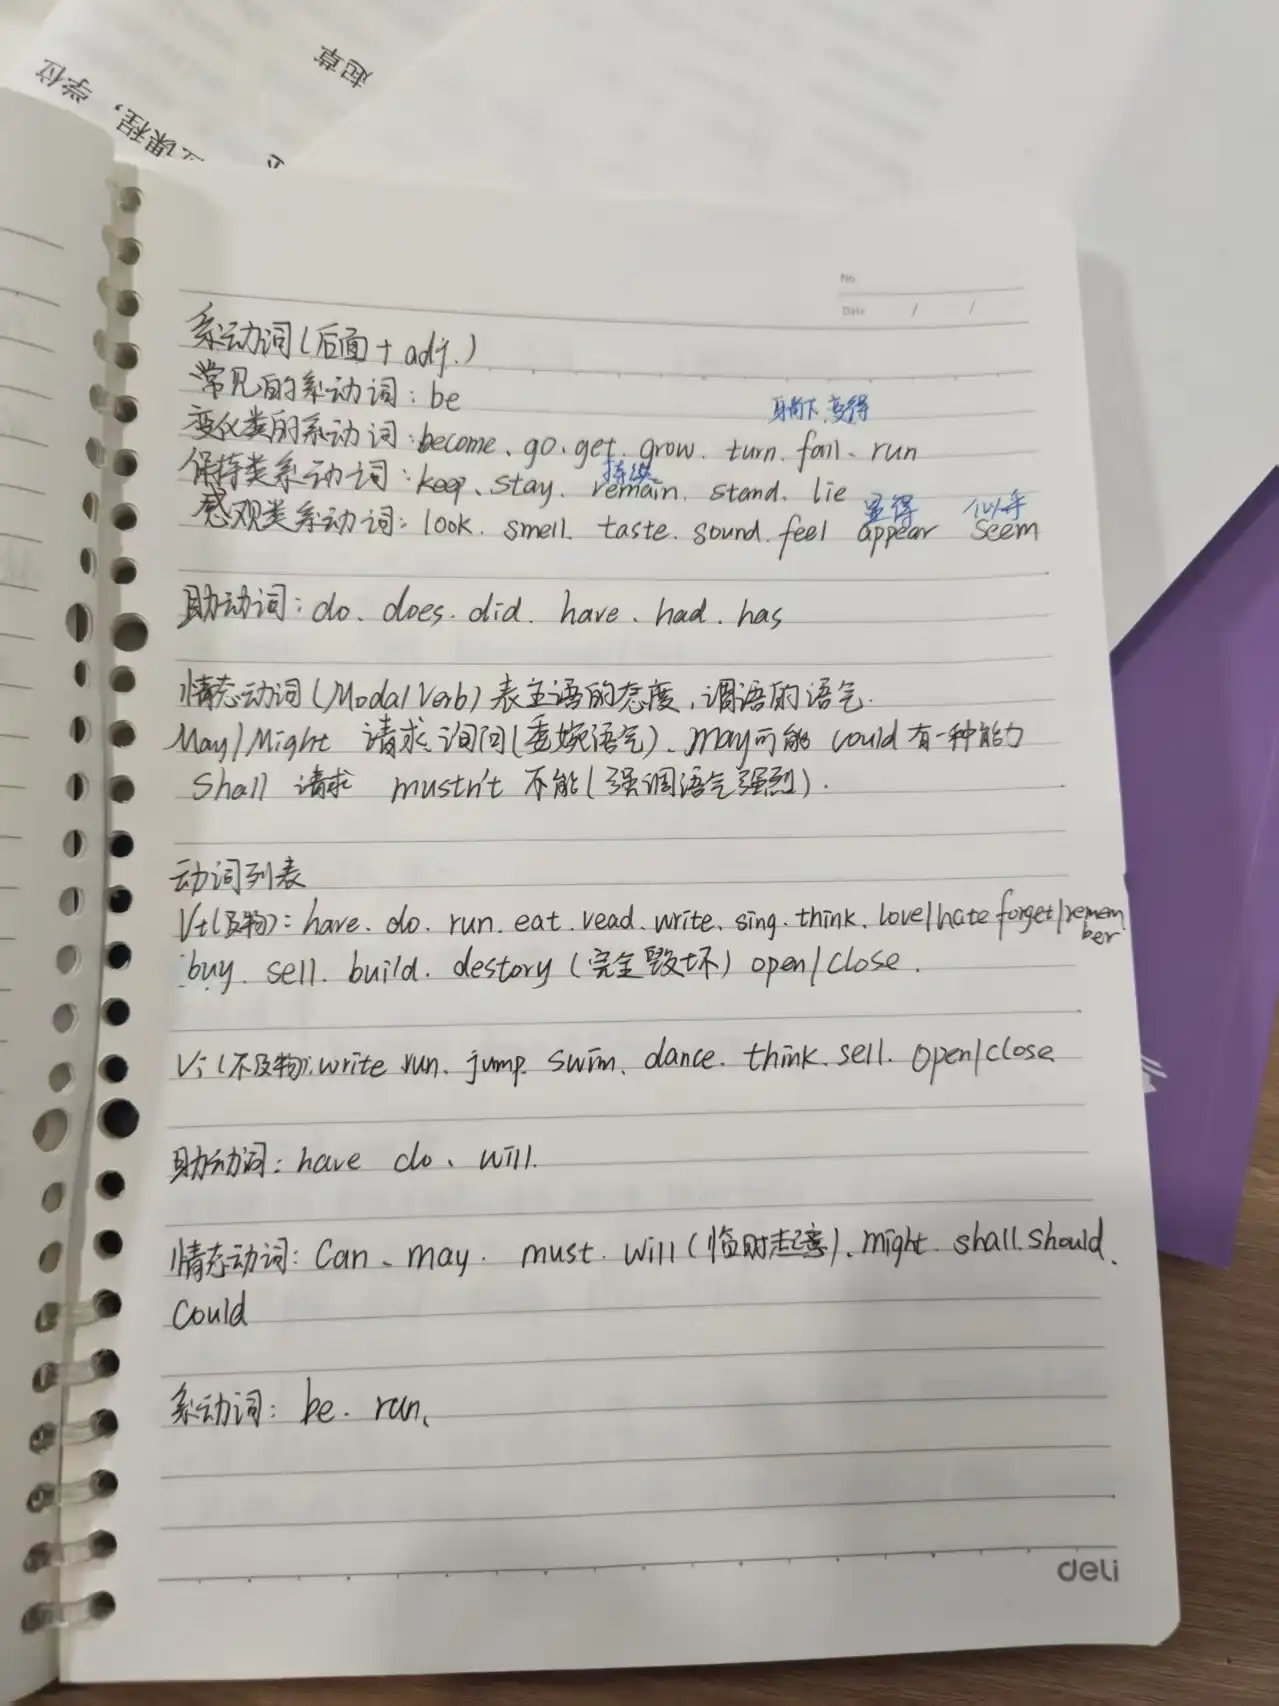 学位
课程，
起草
No.
Date / /
系动词(后面+adj.)
常见的系动词：be
变得
变化类的系动词：become、go、get、grow、turn、fall、run
持续
保持类系动词：keep、stay、remain、stand、lie
显得 似乎
感观类系动词：look、smell、taste、sound、feel appear seem
助动词：do、does、did、have、had、has
情态动词(Modal Verb)表主语的态度，谓语的语气.
May/Might 请求、询问(委婉语气)、may可能 could有一种能力
Shall 请求 mustn't 不能(强调语气强烈).
动词列表
Vt(及物)：have、do、run、eat、read、write、sing、think、love/hate forget/remem
ber
buy、sell、build、destory(完全毁坏) open/close.
Vi(不及物)：write run、jump、swim、dance、think、sell、open/close
助动词：have do、will.
情态动词：Can、may、must、will(临时起意)、might、shall、should、
Could
系动词：be、run、
deli